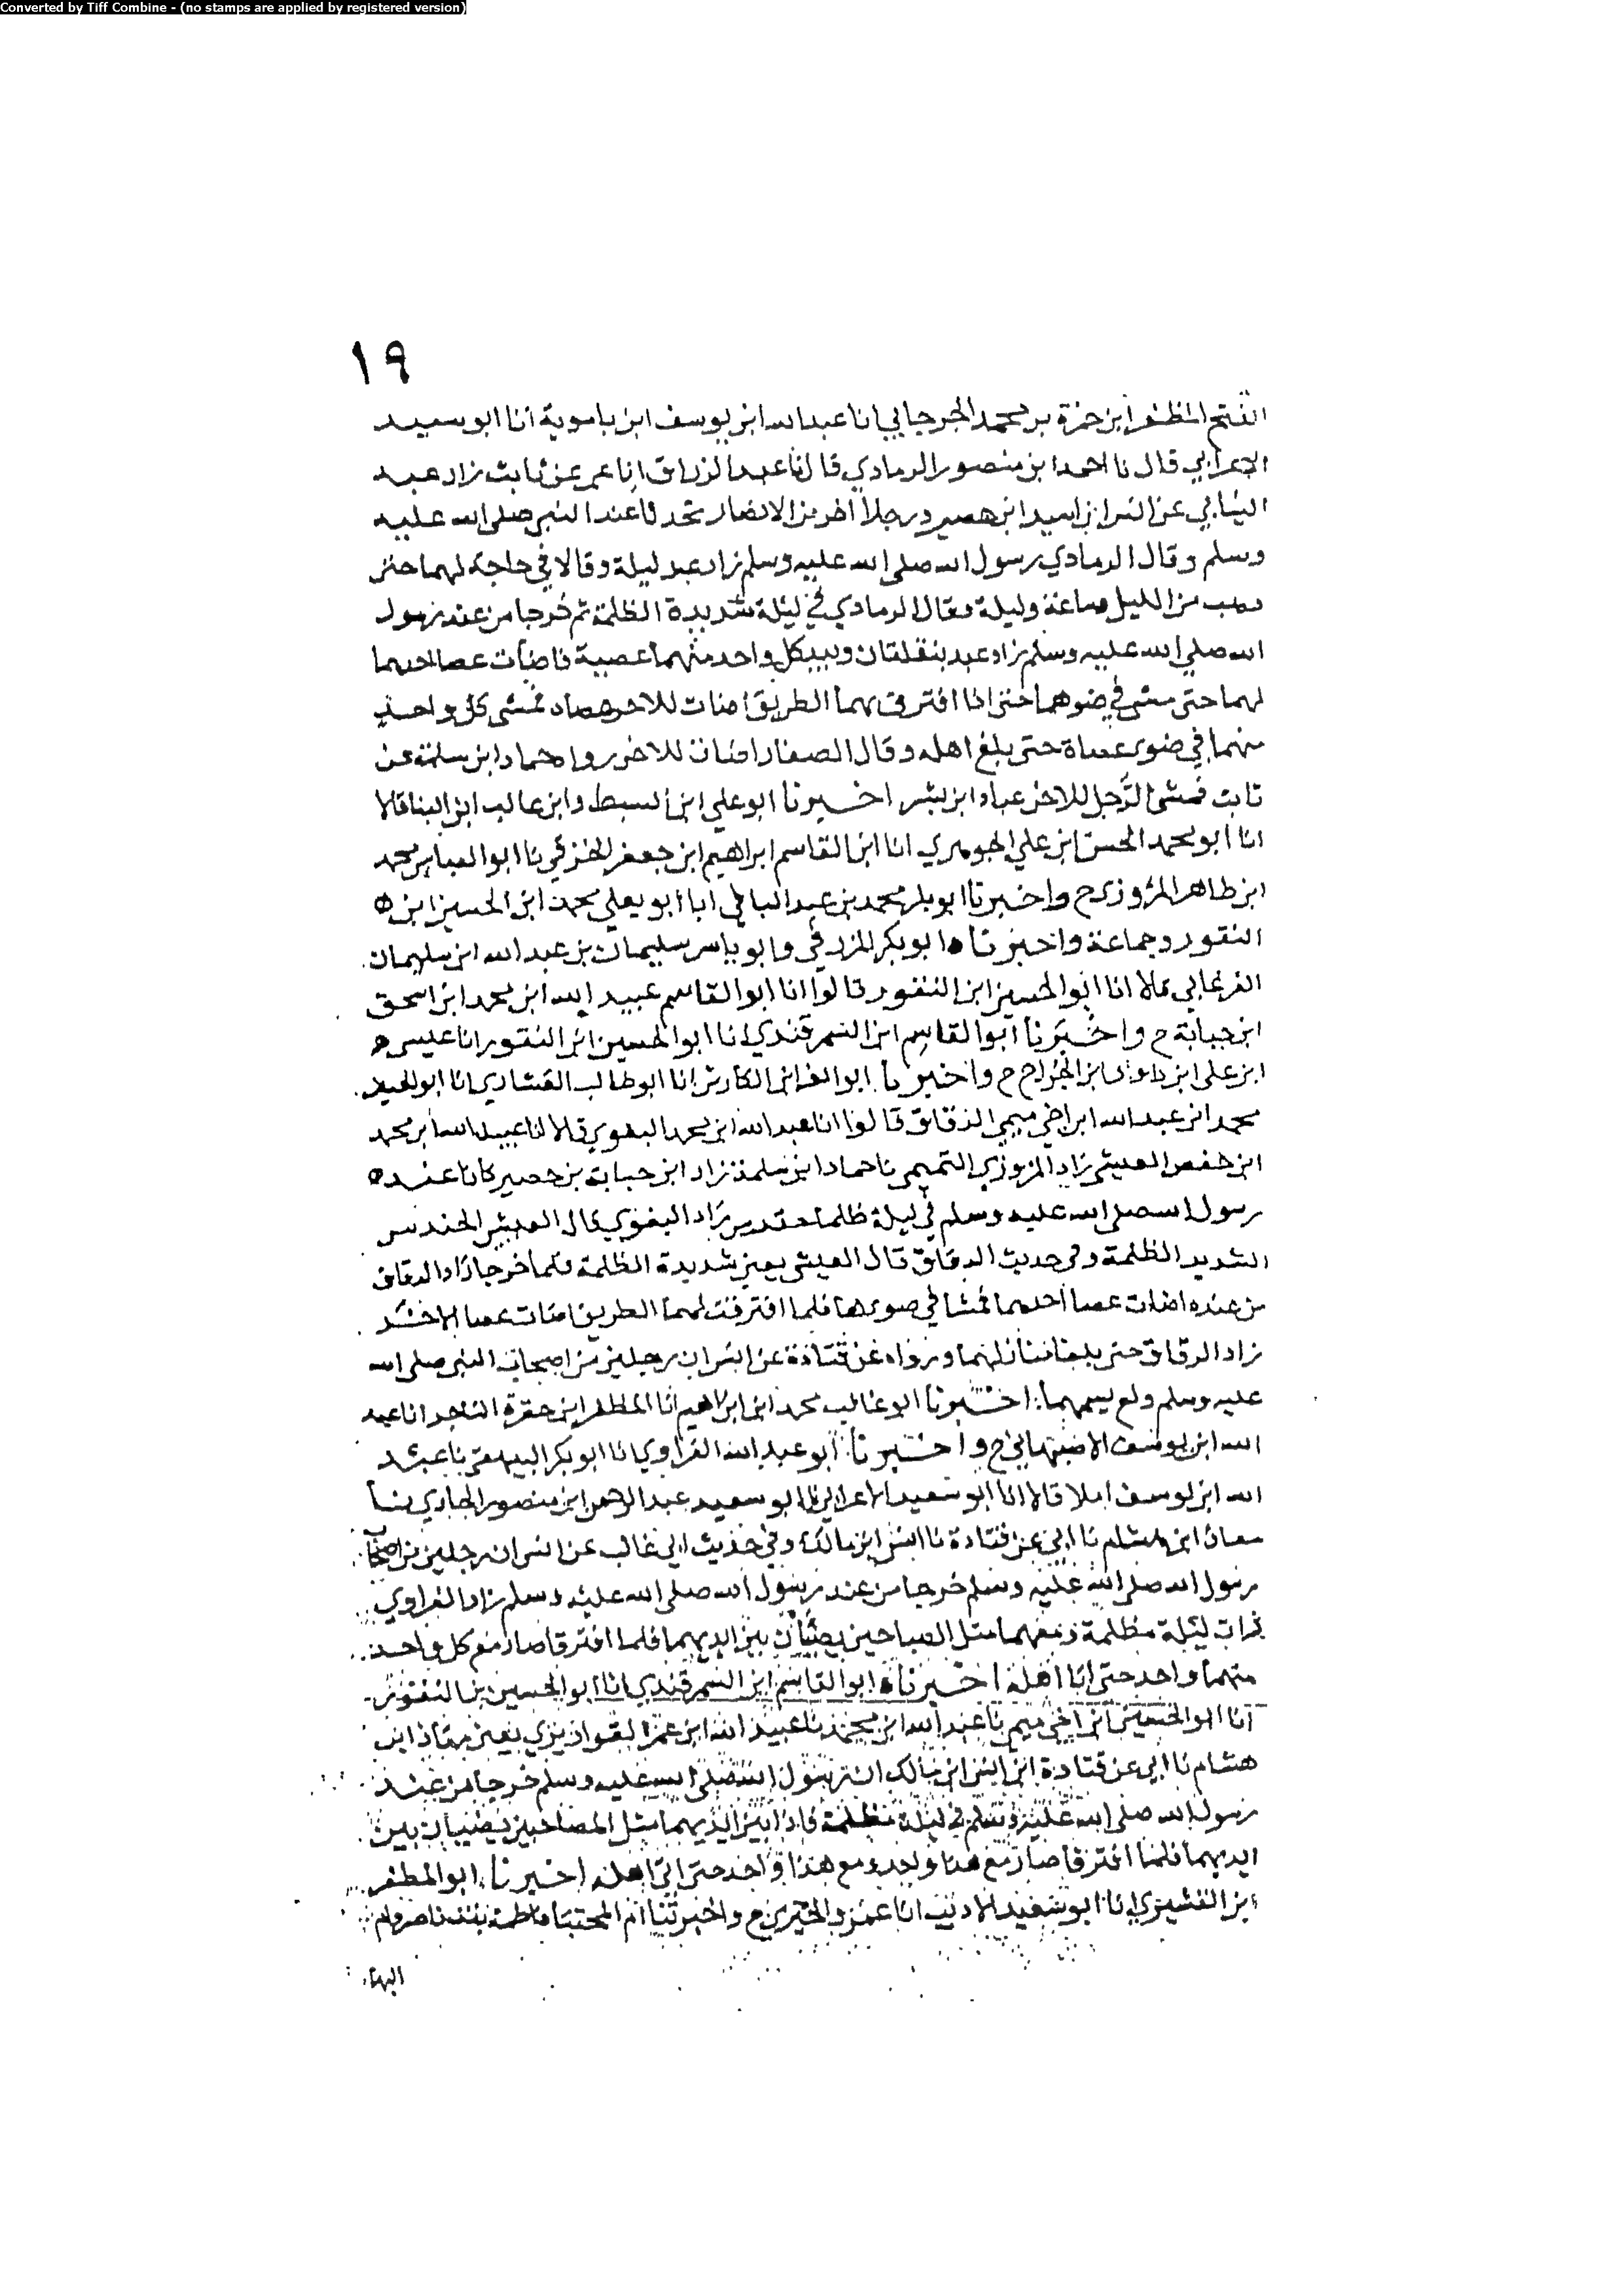 Converted by Tiff Combine - (no stamps are applied by registered version)
١٩
الفتح المظفر ابن حمزة بن محمد الجرجاني انا عبد الله ابن يوسف ابن باموية انا ابو سعيد
الاعرابي قال نا احمد ابن منصور الرمادي قالا نا عبد الرزاق انا معمر عن ثابت زاد عبد
البناني عن انس ان اسيد ابن حصير ورجلا اخر من الانصار تحدثا عند النبي صلى الله عليه
وسلم وقال الرمادي رسول الله صلى الله عليه وسلم زاد عبد ليلة وقالا في حاجة لهما حتى
ذهب من الليل ساعة وليلة وقال الرمادي في ليلة شديدة الظلمة ثم خرجا من عند رسول
الله صلى الله عليه وسلم زاد عبد ينقلبان وبيد كل واحد منهما عصية فاضأت عصا احدهما
لهما حتى مشى في ضوها حتى اذا افترق بهما الطريق اضات للاخر عصاه فمشى كل واحد
منهما في ضوى عصاة حتى بلغ اهله وقال الصفار اضات للاخر رواه حماد ابن سلمة عن
ثابت فمشى الرجل للاخر عباد ابن بشر اخبرنا ابو علي ابن السبط وابن غالب ابن البنا قالا
انا ابو محمد الحسن ابن علي الجوهري انا ابن القاسم ابراهيم ابن جعفر الخرقي نا ابو العباس محمد
ابن طاهر المروزي ح واخبرنا ابو بكر محمد بن عبد الباقي انا ابو يعلي محمد ابن الحسين ابن
النقور وجماعة واخبرناه ابو بكر المزرفي وابو ياسر سليمان بن عبد الله ابن سليمان
الفرغاني قالا انا ابو الحسين ابن النقور قالوا انا ابو القاسم عبيد الله ابن محمد ابن اسحق
ابن حبابة ح واخبرنا ابوا القاسم ابن السمرقندي انا ابو الحسين ابن النقور انا عيسى
ابن علي ابن داود ابن الجراح ح واخبرنا ابو العز ابن الكادش انا ابو طالب العشاري انا ابو الحسين
محمد ابن عبد الله ابن اخي ميمي الدقاق قالوا انا عبد الله ابن محمد البغوي قالا نا عبيد الله ابن محمد
ابن حفص العيشي زاد المروزي التميمي نا حماد ابن سلمة زاد ابن حبابة بن حصير كانا عند
رسول الله صلى الله عليه وسلم في ليلة ظلما حندس زاد البغوي قال العيشي الحندس
الشديد الظلمة وفي حديث الدقاق قال العيشي يعني شديدة الظلمة فلما خرجا زاد الدقاق
من عنده اضات عصا احدهما فمشا في ضوءها فلما افترقت لهما الطريق اضات عصا الاخر
زاد الدقاق حتى بلغا منازلهما ورواه عن قتادة عن انس ان رجلين من اصحاب النبي صلى الله
عليه وسلم ولم يسمهما اخبرنا ابو غالب محمد ابن ابراهيم انا المظفر ابن حمزة التاجر انا عبد
الله ابن يوسف الاصبهاني ح واخبرنا ابو عبد الله الفراوي انا ابو بكر البيهقي نا عبد
الله ابن يوسف املا قالا انا ابو سعيد الاعرابي نا ابو سعيد عبد الرحمن ابن منصور الحارثي نا
معاذ ابن هشام نا ابي عن قتادة نا انس ابن مالك وفي حديث ابي غالب عن انس ان رجلين من اصحاب
رسول الله صلى الله عليه وسلم خرجا من عند رسول الله صلى الله عليه وسلم زاد الفراوي
ذات ليلة مظلمة ومعهما مثل المصباحين يضيأن بين ايديهما فلما افترقا صار مع كل واحد
منهما واحد حتى اتا اهله اخبرناه ابو القاسم ابن السمرقندي انا ابو الحسين بن النقور
انا ابو الحسين ابن اخي ميمي نا عبد الله ابن محمد نا عبيد الله ابن عمر القواريري يعني معاذ ابن
هشام نا ابي عن قتادة ابن انس ابن مالك ان رسول الله صلى الله عليه وسلم خرجا من عند
رسول الله صلى الله عليه وسلم في ليلة مظلمة فاذا بين ايديهما مثل المصباحين يضيان بين
ايديهما فلما افترقا صار مع هذا واحد ومع هذا واحد حتى اتى اهله اخبرنا ابو المظفر
ابن القشيري انا ابو سعيد الاديب انا عمرو الحيري ح واخبرتنا ام المجتبا فاطمة بنت ناصر قالت
البهاء